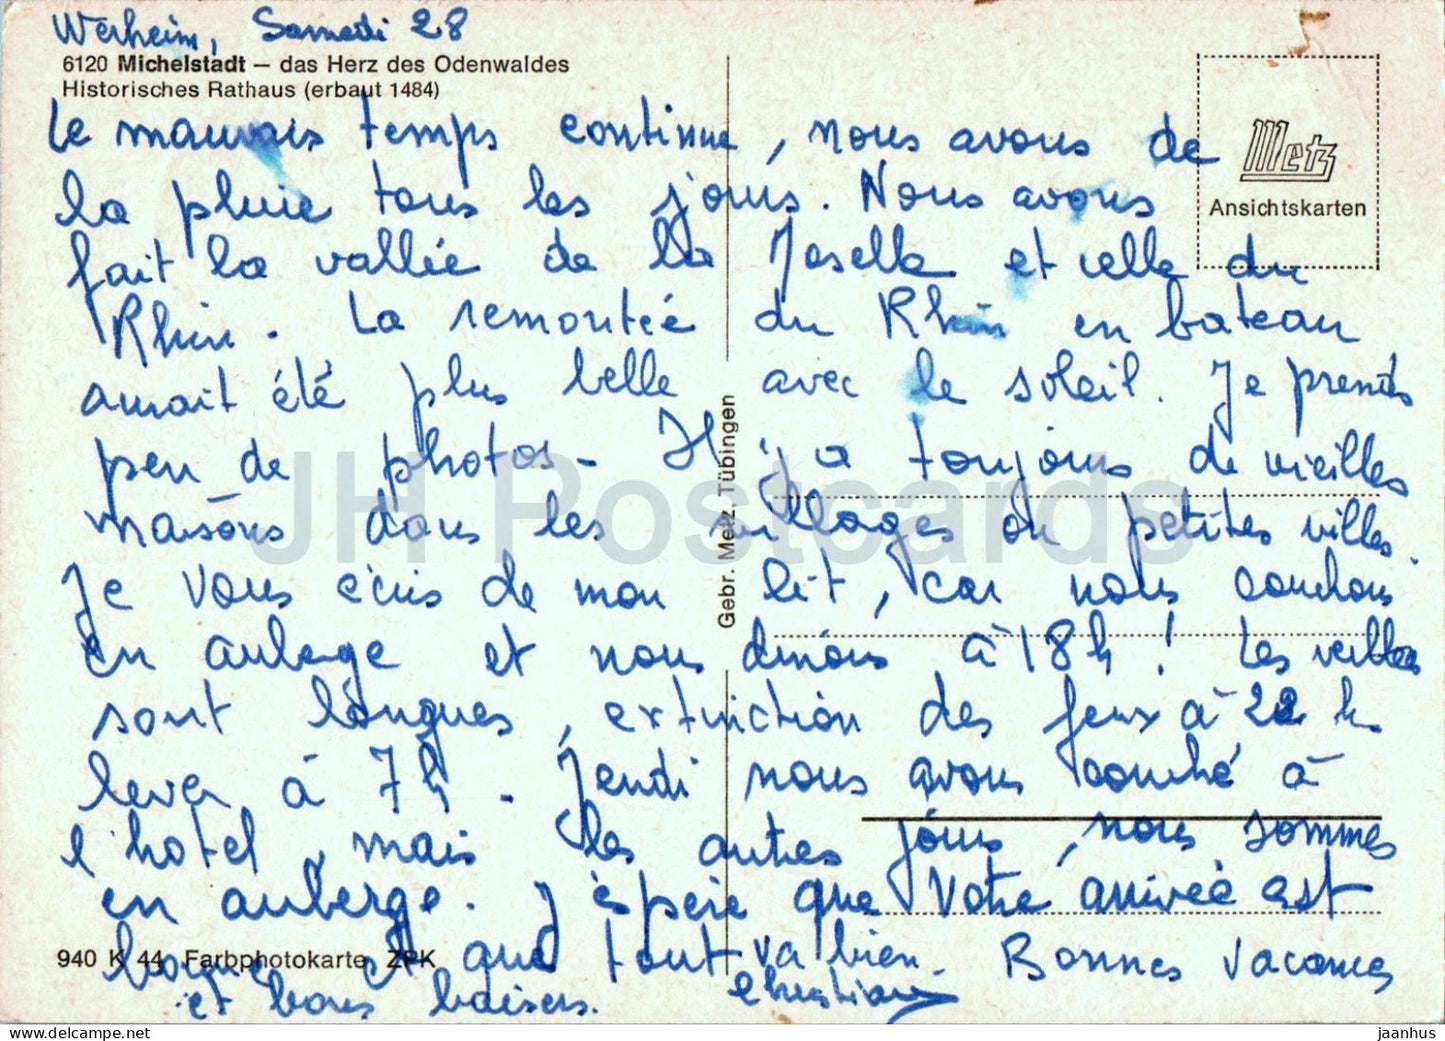 Werheim, Samedi 28
6120 Michelstadt – das Herz des Odenwaldes
Historisches Rathaus (erbaut 1484)
Metz
Ansichtskarten
Le mauvais temps continue, nous avons de
la pluie tous les jours. Nous avons
fait la vallée de la Joselle et celle du
Rhin. La remontée du Rhin en bateau
aurait été plus belle avec le soleil. Je prends
peu de photos - Il y a toujours de vieilles
maisons dans les villages ou petites villes.
Je vous écris de mon lit, car nous couchons
en auberge et nous dinons à 18h ! Les veillées
sont longues, extinction des feux à 22 h
lever à 7h - Jeudi nous avons couché à
l'hotel, mais les autres jours, nous sommes
en auberge. J'espère que votre arrivée est
bonne et que tout va bien. Bonnes vacances
et bons baisers. Christiane
Gebr. Metz, Tübingen
940 K 44 Farbphotokarte ZPK
JH Postcards
www.delcampe.net
jaanhus